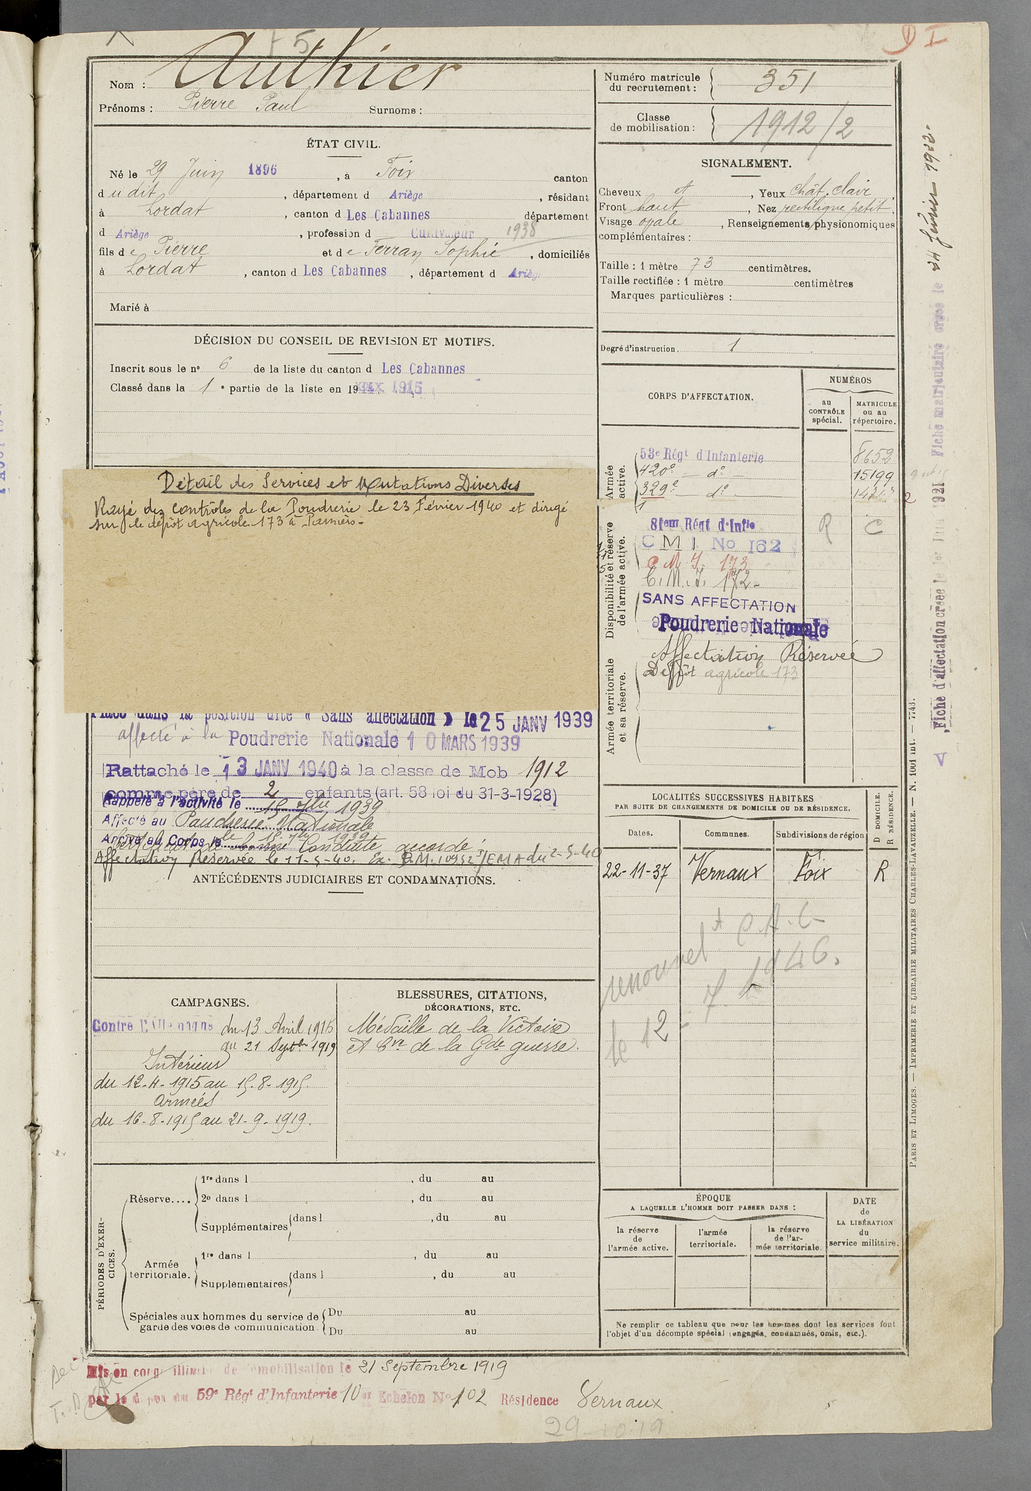 F5
D I
Nom : Authier
Prénoms : Pierre Paul Surnoms :
Numéro matricule du recrutement : 351
Classe de mobilisation : 1912/2
ÉTAT CIVIL.
Né le 29 Juin 1896, à Foix canton
dudit, département d Ariège, résidant
à Lordat, canton d Les Cabannes département
d Ariège, profession d Cultivateur 1938
fils de Pierre et de Ferran Sophie, domiciliés
à Lordat, canton d Les Cabannes, département d Ariège
Marié à
SIGNALEMENT.
Cheveux et, Yeux chât. clair
Front haut, Nez rectiligne petit,
Visage ovale, Renseignements physionomiques
complémentaires :
Taille : 1 mètre 73 centimètres.
Taille rectifiée : 1 mètre centimètres
Marques particulières :
Degré d'instruction. 1
DÉCISION DU CONSEIL DE REVISION ET MOTIFS.
Inscrit sous le n° 6 de la liste du canton d Les Cabannes
Classé dans la 1e partie de la liste en 1915
Détail des Services et Mutations Diverses
Rayé des contrôles de la Poudrerie le 23 Février 1940 et dirigé
sur le dépôt agricole 173 à Pamiers-
Placé dans la position dite « Sans affectation » le 25 JANV 1939
affecté à la Poudrerie Nationale 10 MARS 1939
Rattaché le 13 JANV 1940 à la classe de Mob 1912
comme père de 2 enfants (art. 58 loi du 31-3-1928)
Rappelé à l'activité le 1939
Affecté au Poudrerie Nationale
Arrivé au Corps le
Conduite accordé
Affectation Réservée le 11-5-40. Ex. D.M. 10952/EMA du 2-5-40
CORPS D'AFFECTATION.
NUMÉROS
au CONTRÔLE spécial.
MATRICULE ou au répertoire.
Armée active.
53e Régt d'Infanterie 8653
420e d° 15199
329e d°
Disponibilité et réserve de l'armée active.
81em Régt d'Inftie R C
C M I. No 162
C.M.I. 173
C.M.I. 172-
SANS AFFECTATION
Poudrerie Nationale
Affectation Réservée
Dépôt agricole 173
Armée territoriale et sa réserve.
LOCALITÉS SUCCESSIVES HABITÉES
PAR SUITE DE CHANGEMENTS DE DOMICILE OU DE RÉSIDENCE.
Dates. Communes. Subdivisions de région D DOMICILE. R RÉSIDENCE.
22-11-37 Vernaux Foix R
renouvelt C.A.C
le 12 - 7 1946.
ANTÉCÉDENTS JUDICIAIRES ET CONDAMNATIONS.
CAMPAGNES.
Contre l'Allemagne du 13 Avril 1915
au 21 Septbre 1919
Intérieur
du 12-4-1915 au 15-8-1915
Armées
du 16-8-1915 au 21-9-1919.
BLESSURES, CITATIONS,
DÉCORATIONS, ETC.
Médaille de la Victoire
et Cve de la Gde guerre.
PÉRIODES D'EXERCICES.
Réserve....
1re dans l , du au
2e dans l , du au
Supplémentaires dans l , du au
Armée territoriale.
1re dans l , du au
Supplémentaires dans l , du au
Spéciales aux hommes du service de
garde des voies de communication.
Du au
Du au
ÉPOQUE
A LAQUELLE L'HOMME DOIT PASSER DANS :
la réserve de l'armée active.
l'armée territoriale.
la réserve de l'armée territoriale.
DATE de LA LIBÉRATION du service militaire.
Ne remplir ce tableau que pour les hommes dont les services font
l'objet d'un décompte spécial (engagés, condamnés, omis, etc.).
Mis en congé illimité de démobilisation le 21 Septembre 1919
par le dépôt du 59e Régt d'Infanterie 10e Echelon No 102 Résidence Vernaux
29-10-19
PARIS ET LIMOGES. — IMPRIMERIE ET LIBRAIRIE MILITAIRES CHARLES-LAVAUZELLE. — N. 1001 int. — 7743.
Fiche d'affectation créée le 1er Juin 1921 Fiche matriculaire créée le 24 février 1922.